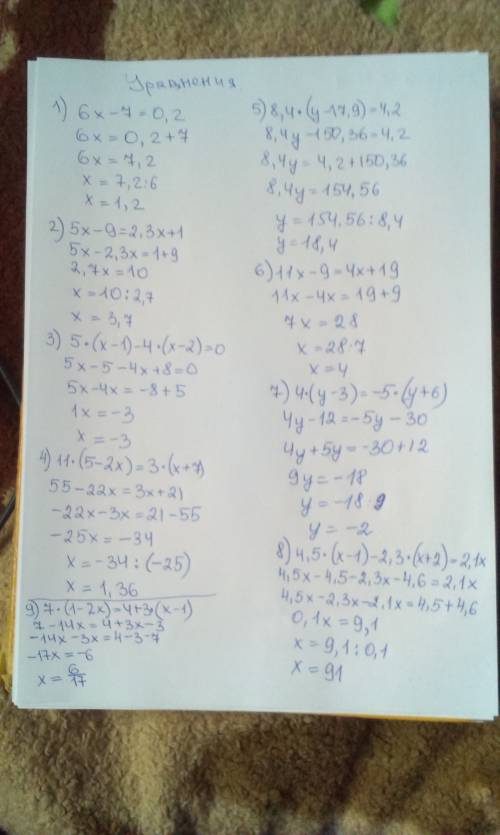 Уравнения
1) 6x-7=0,2
6x=0,2+7
6x=7,2
x=7,2:6
x=1,2
2) 5x-9=2,3x+1
5x-2,3x=1+9
2,7x=10
x=10:2,7
x=3,7
3) 5·(x-1)-4·(x-2)=0
5x-5-4x+8=0
5x-4x=-8+5
1x=-3
x=-3
4) 11·(5-2x)=3·(x+7)
55-22x=3x+21
-22x-3x=21-55
-25x=-34
x=-34:(-25)
x=1,36
9) 7·(1-2x)=4+3·(x-1)
7-14x=4+3x-3
-14x-3x=4-3-7
-17x=-6
x=6/17
5) 8,4·(y-17,9)=4,2
8,4y-150,36=4,2
8,4y=4,2+150,36
8,4y=154,56
y=154,56:8,4
y=18,4
6) 11x-9=4x+19
11x-4x=19+9
7x=28
x=28:7
x=4
7) 4·(y-3)=-5·(y+6)
4y-12=-5y-30
4y+5y=-30+12
9y=-18
y=-18:9
y=-2
8) 4,5·(x-1)-2,3·(x+2)=2,1x
4,5x-4,5-2,3x-4,6=2,1x
4,5x-2,3x-2,1x=4,5+4,6
0,1x=9,1
x=9,1:0,1
x=91